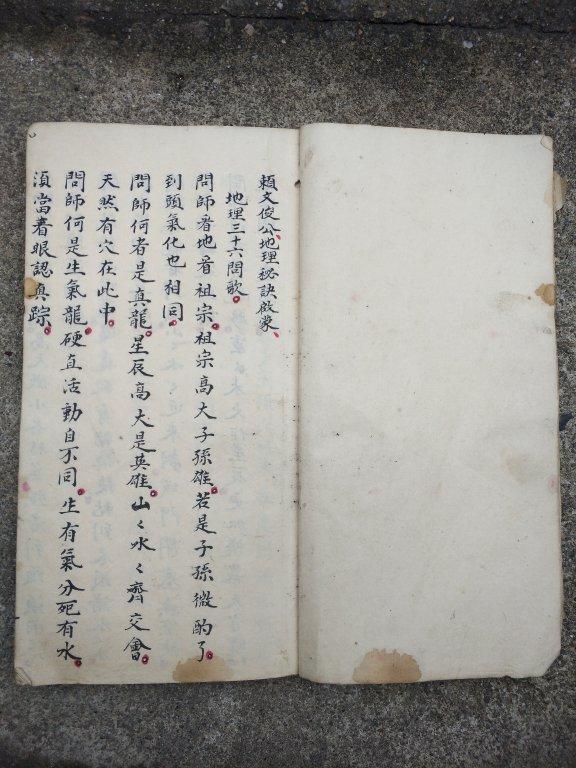 賴文俊公地理秘訣啟蒙
地理三十六問歌
問師看地看祖宗祖宗高大子孫雄若是子孫微酌了
到頭氣化也相同
問師何者是真龍星辰高大是英雄山々水々齊交會
天然有穴在此中
問師何是生氣龍硬直活動自不同生有氣分死有水
須當着眼認真踪